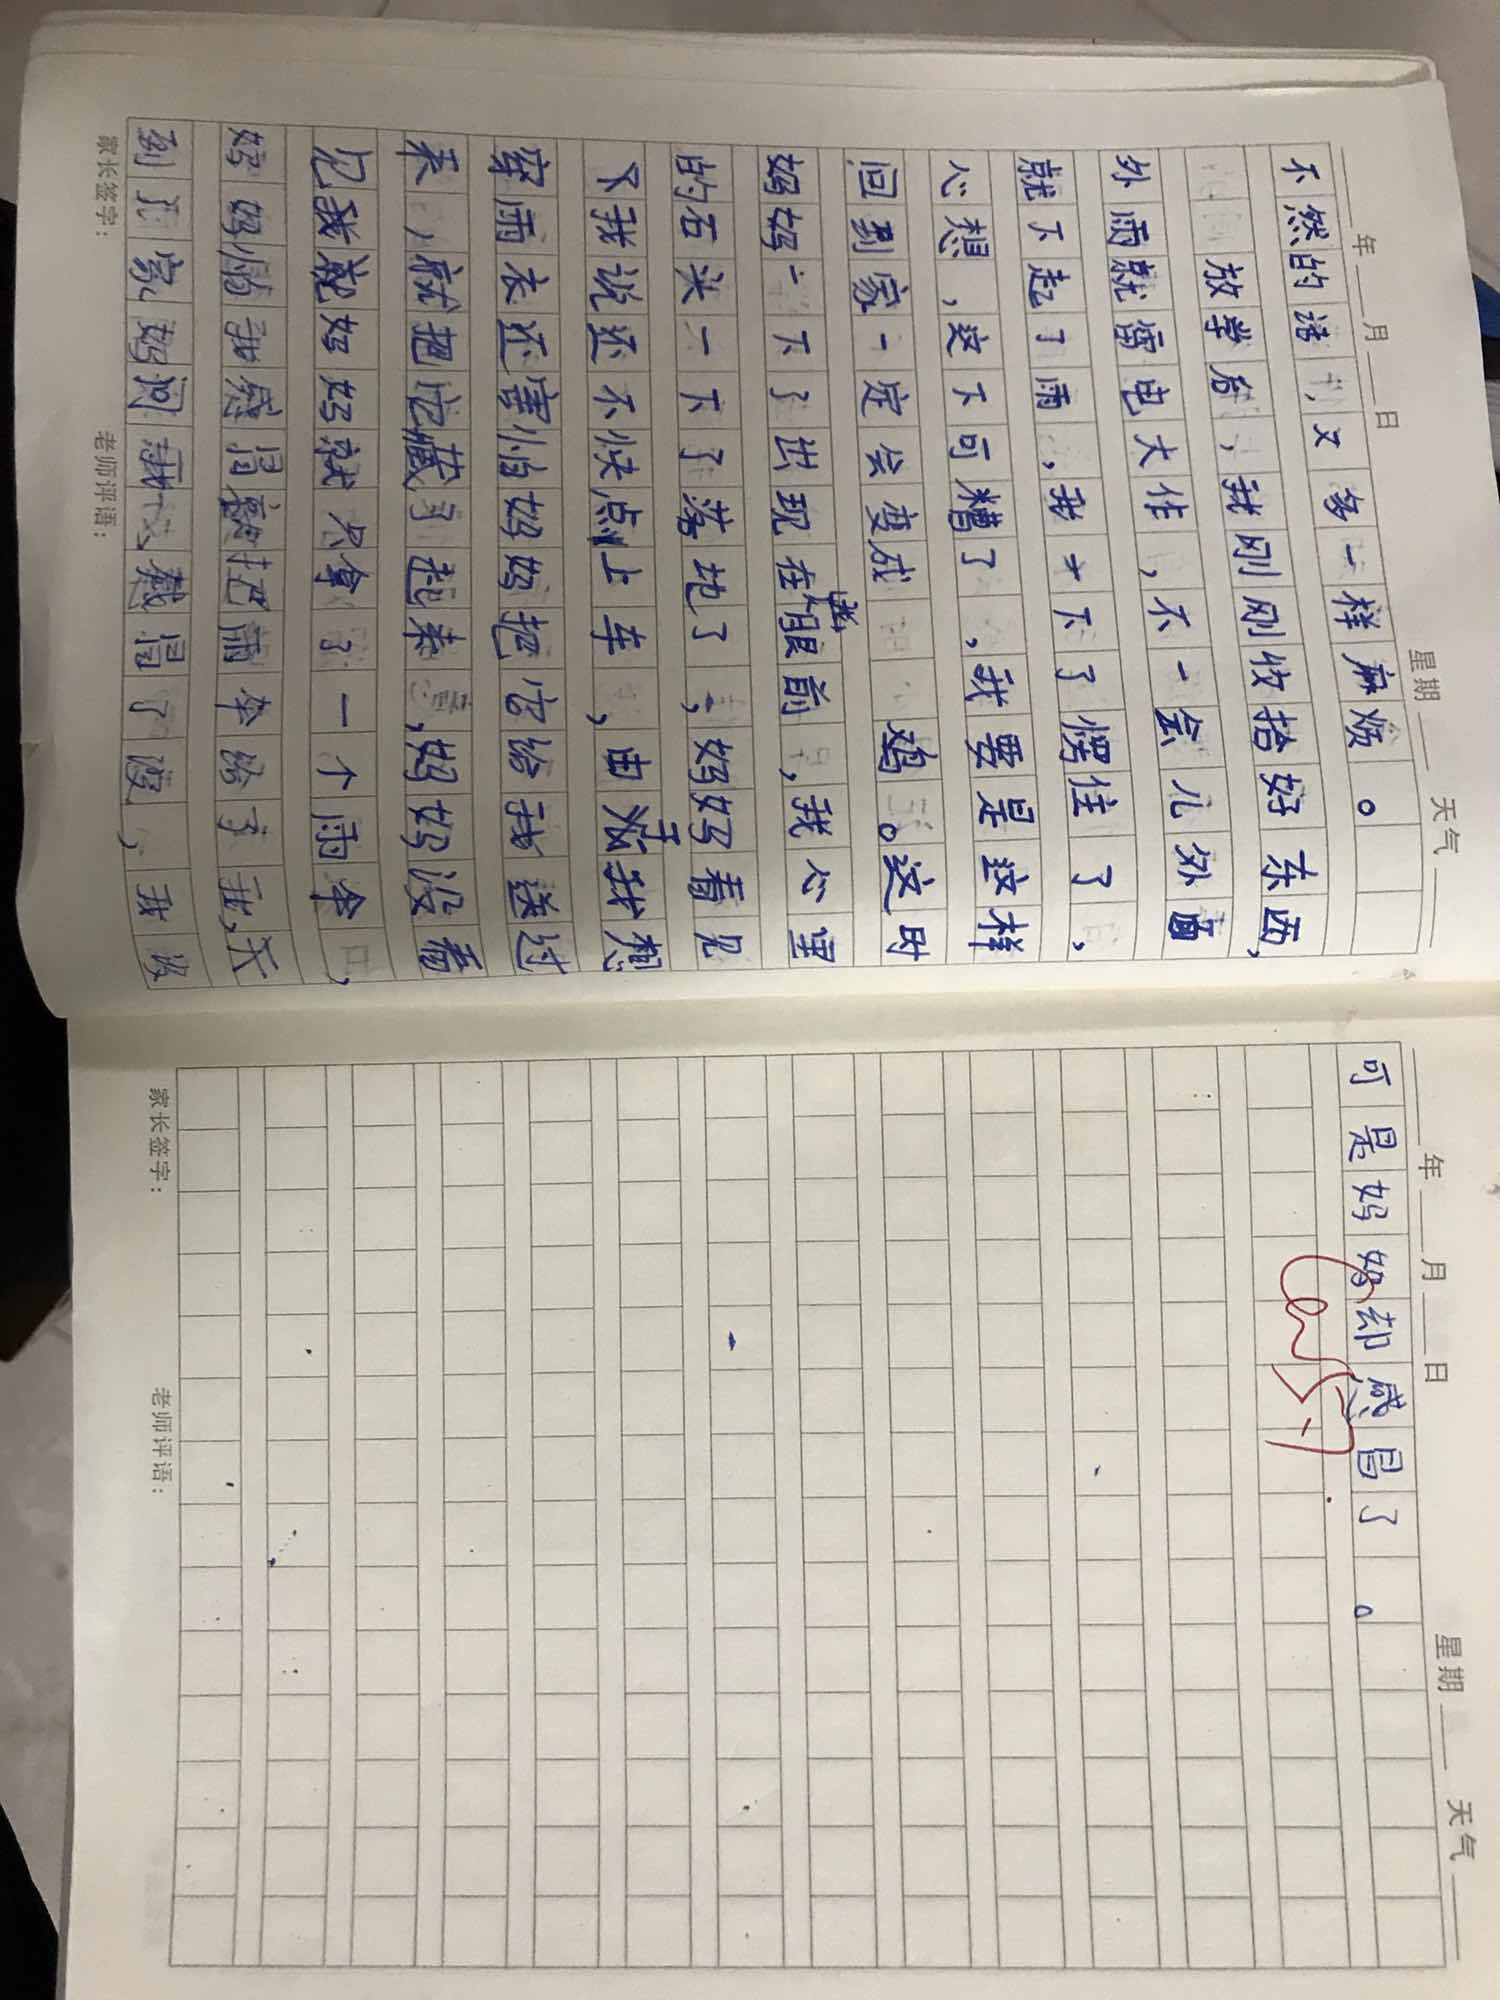 年 月 日 星期 天气
不然的话,又多一样麻烦。
放学后,我刚刚收拾好东西,
外雨就雷电大作,不一会儿外面
就下起了雨,我一下了愣住了,
心想,这下可糟了,我要是这样
回到家一定会变成 鸡。这时
妈妈一下了出现在眼前,我心里
的石头一下了落地了,妈妈看见
下我说还不快点上车,由于我想
穿雨衣还害怕妈妈把它给我送过
来,就把它藏了起来,妈妈没看
见我就妈妈就只拿了一个雨伞,
妈妈怕我感冒就把雨伞给了我,不
到了家妈问我 感冒了没,我没
家长签字: 老师评语:
年 月 日 星期 天气
可是妈妈却感冒了。
家长签字: 老师评语: